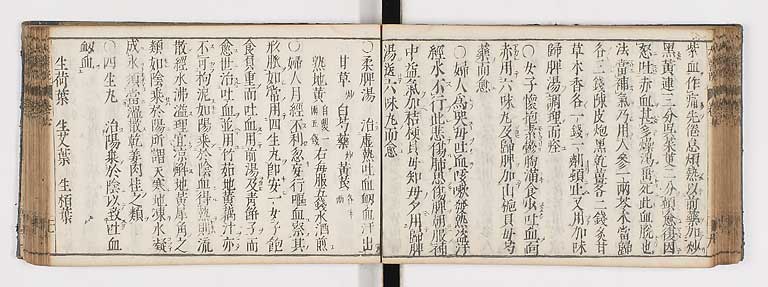 紫血作痛先倦怠煩熱以前藥加炒
黑黃連三分呉茱萸二分頓愈復因
怒吐赤血甚多燥渴垂死此血脫也
法當補氣乃用人參一兩苓朮當歸
各三錢陳皮炮黑乾薑各二錢炙甘
草木香各一錢一劑頓止又用加味
歸脾湯調理而痊
○女子懷抱素鬱胸滿食少吐血面
赤用六味丸及歸脾加山梔貝母芍
藥而愈
○婦人為哭母吐血咳嗽發熱盗汗
經水不行此悲傷肺思傷脾朝服補
中益氣加桔梗貝母知母夕用歸脾
湯送六味丸而愈
○柔脾湯 治虛熱吐血衂血汗出
甘草 白芍藥 黃芪
熟地黃 右每服五錢水酒煎
○婦人月經不利忿安行嘔血察其
形脈如常用四生丸即安一女子飽
食負重而吐血用前湯及青餘子而
愈世治吐血並用竹茹地黃藕汁亦
不可拘泥如陽乘於陰血得熱則流
散經水沸溢理宜涼解地黃犀角之
類如陰乘於陽所謂天寒地凍水凝
成氷須當溫散乾薑肉桂之類
○四生丸 治陽乘於陰以致吐血
衂血
生荷葉 生艾葉 生栢葉